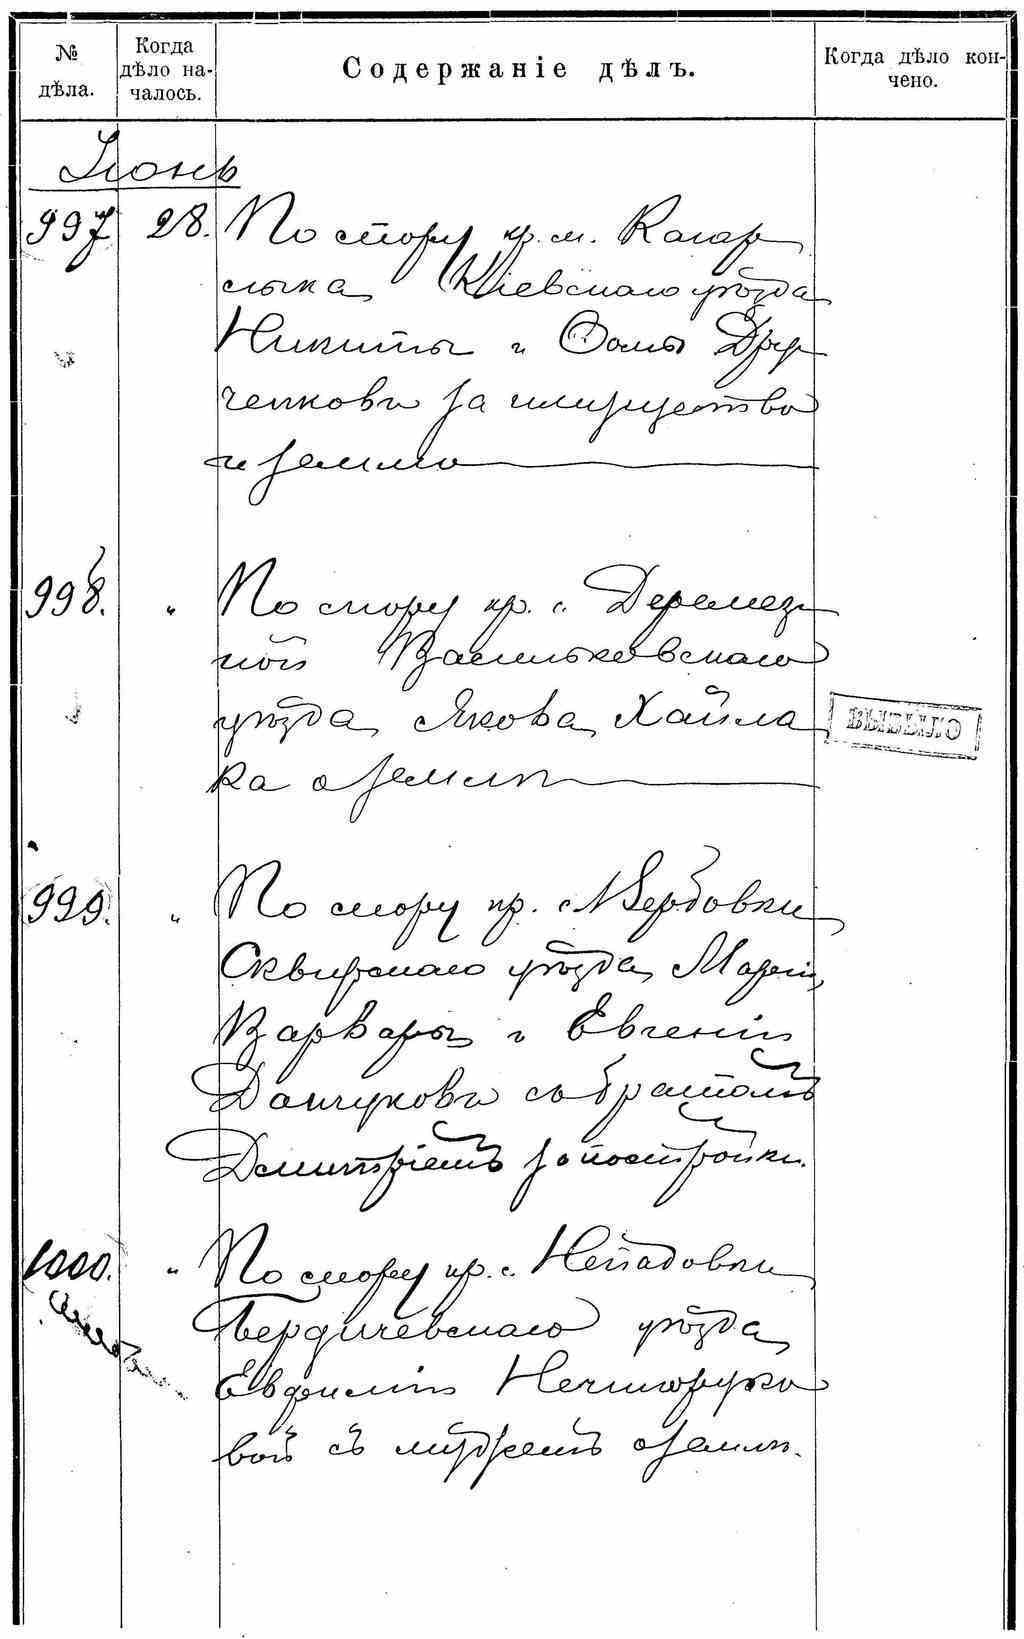 № дѣла.
Когда дѣло на-
чалось.
Содержаніе дѣлъ.
Когда дѣло кон-
чено.
Іюнь
997 28. По спору кр. м. Кагар
лыка Кіевскаго уѣзда
Никиты и Ѳомы Дру
ченковъ за имущество
и землю
998. " По спору кр. с. Деремез
ной Васильковскаго
уѣзда Якова Хайла
ка о землѣ
ВЫБЫЛО
999. " По спору кр. с. Вербовки
Сквирскаго уѣзда Маріи,
Варвары и Евгеніи
Данчуковъ съ братомъ
Дмитріемъ за постройки.
1000. " По спору кр. с. Непадовки
Бердичевскаго уѣзда
Евфиміи Нечипоруко
вой съ мужемъ о землѣ.